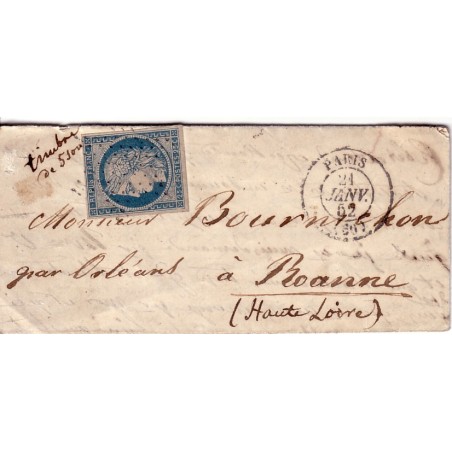 timbre
de 5 sous
PARIS
21
JANV.
52
(60)
Monsieur Bournichon
par Orléans à Roanne
(Haute Loire)